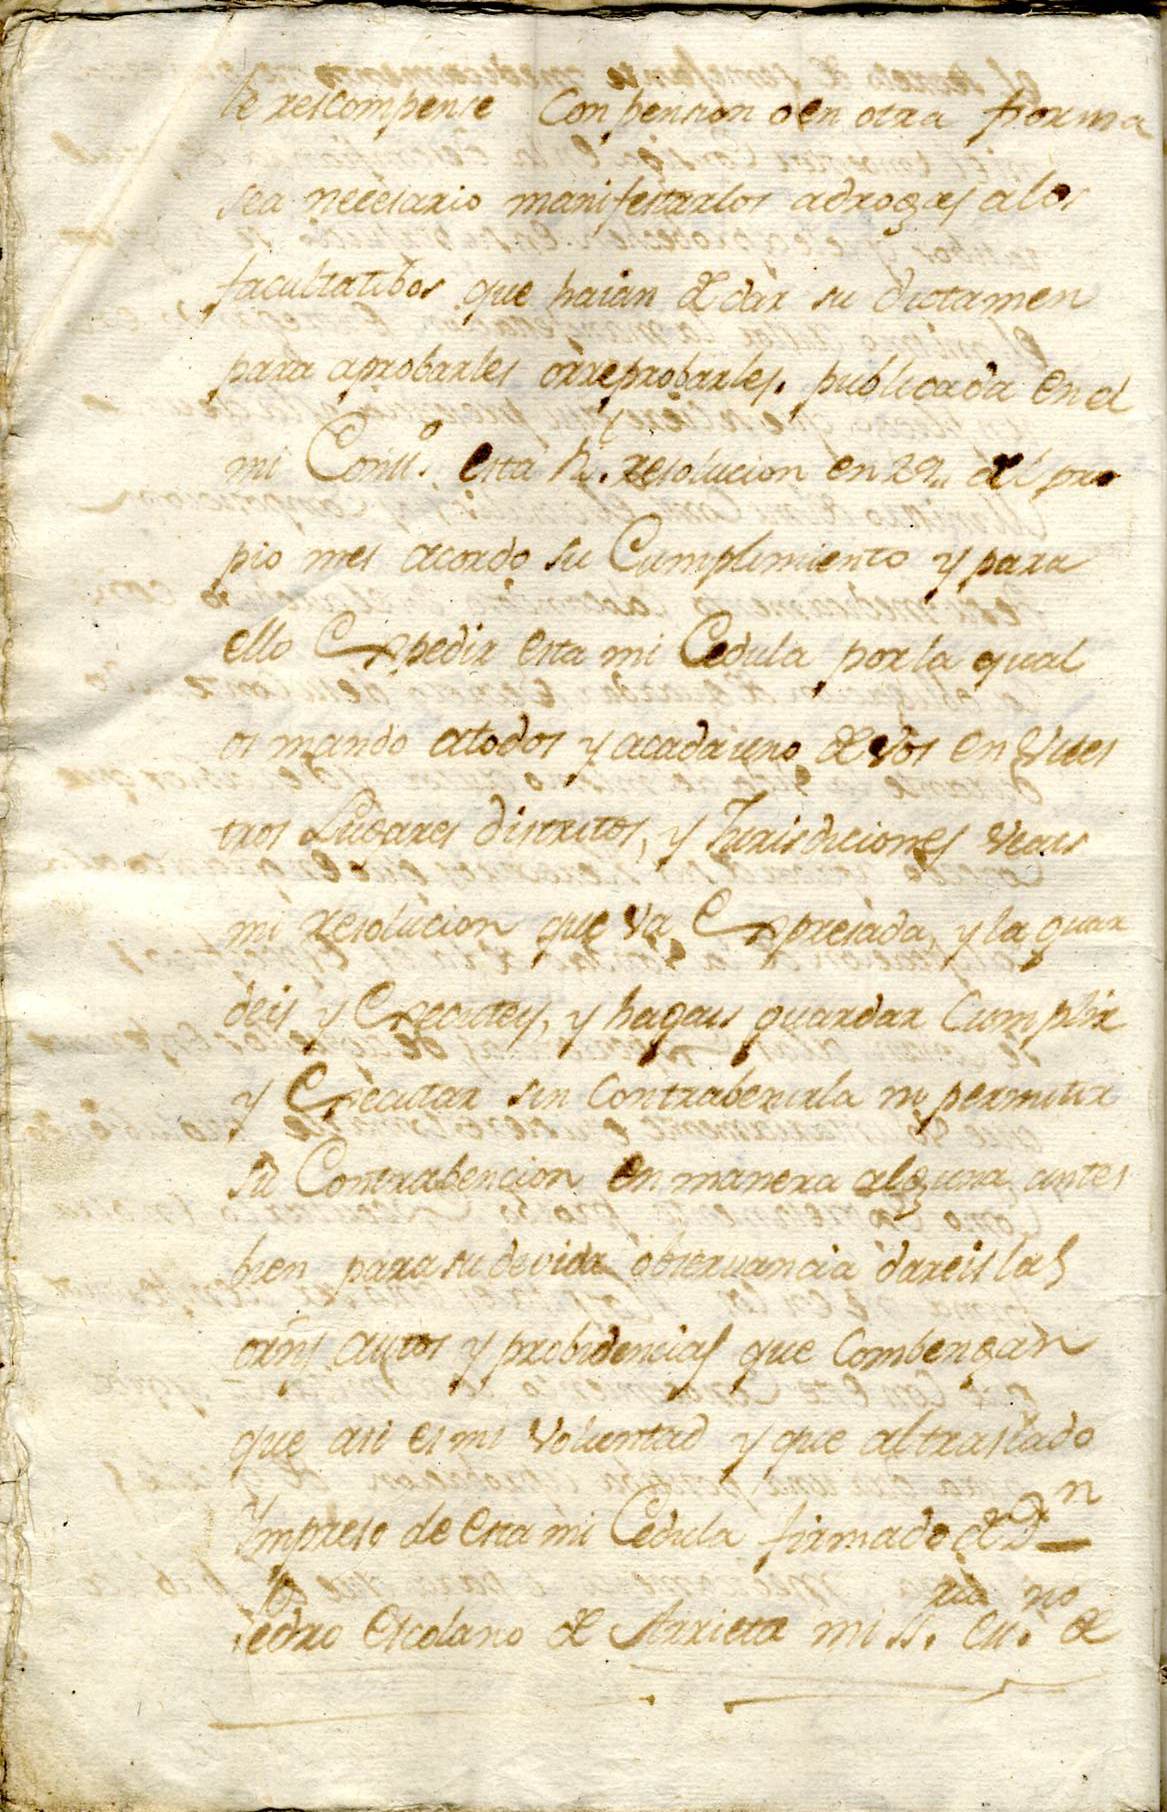 le rescompense Con pension o en otra forma
sea necesario manifestarlos adrogas a los
facultatibos que haian de dar su dictamen
para aprobarles orreprobarles. publicada en el
mi Cons.º esta R.l resolucion en 29,, del pro
pio mes acordo su Cumplimiento y para
ello Expedir esta mi Cedula por la qual
os mando atodos y acadauno de vos en Vues
tros Lugares distritos, y Jurisdiciones Veais
mi resolucion que va Expresada, y la guar
deis y Executeis, y hagais guardar Cumplir
y Executar sin Contrabenirla ni permitir
su Contrabencion en manera alguna antes
bien para su devida observancia dareis las
orns autos y probidencias que Combengan
que asi es mi Voluntad y que al traslado
Ympreso de esta mi Cedula firmado de Dn
Pedro Escolano de Arrieta mi S.rio Es.no de